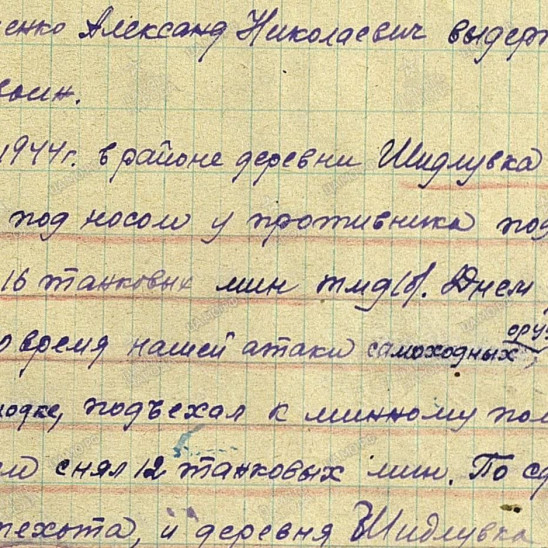 енко Александр Николаевич выдер
воин.
1944г. в районе деревни Шидлувка
под носом у противника под
16 танковых мин тмд(б). Днем
о время нашей атаки самоходных оруд
лодке, подъехал к минному пол
м снял 12 танковых мин. По с
пехота, и деревня Шидлувка